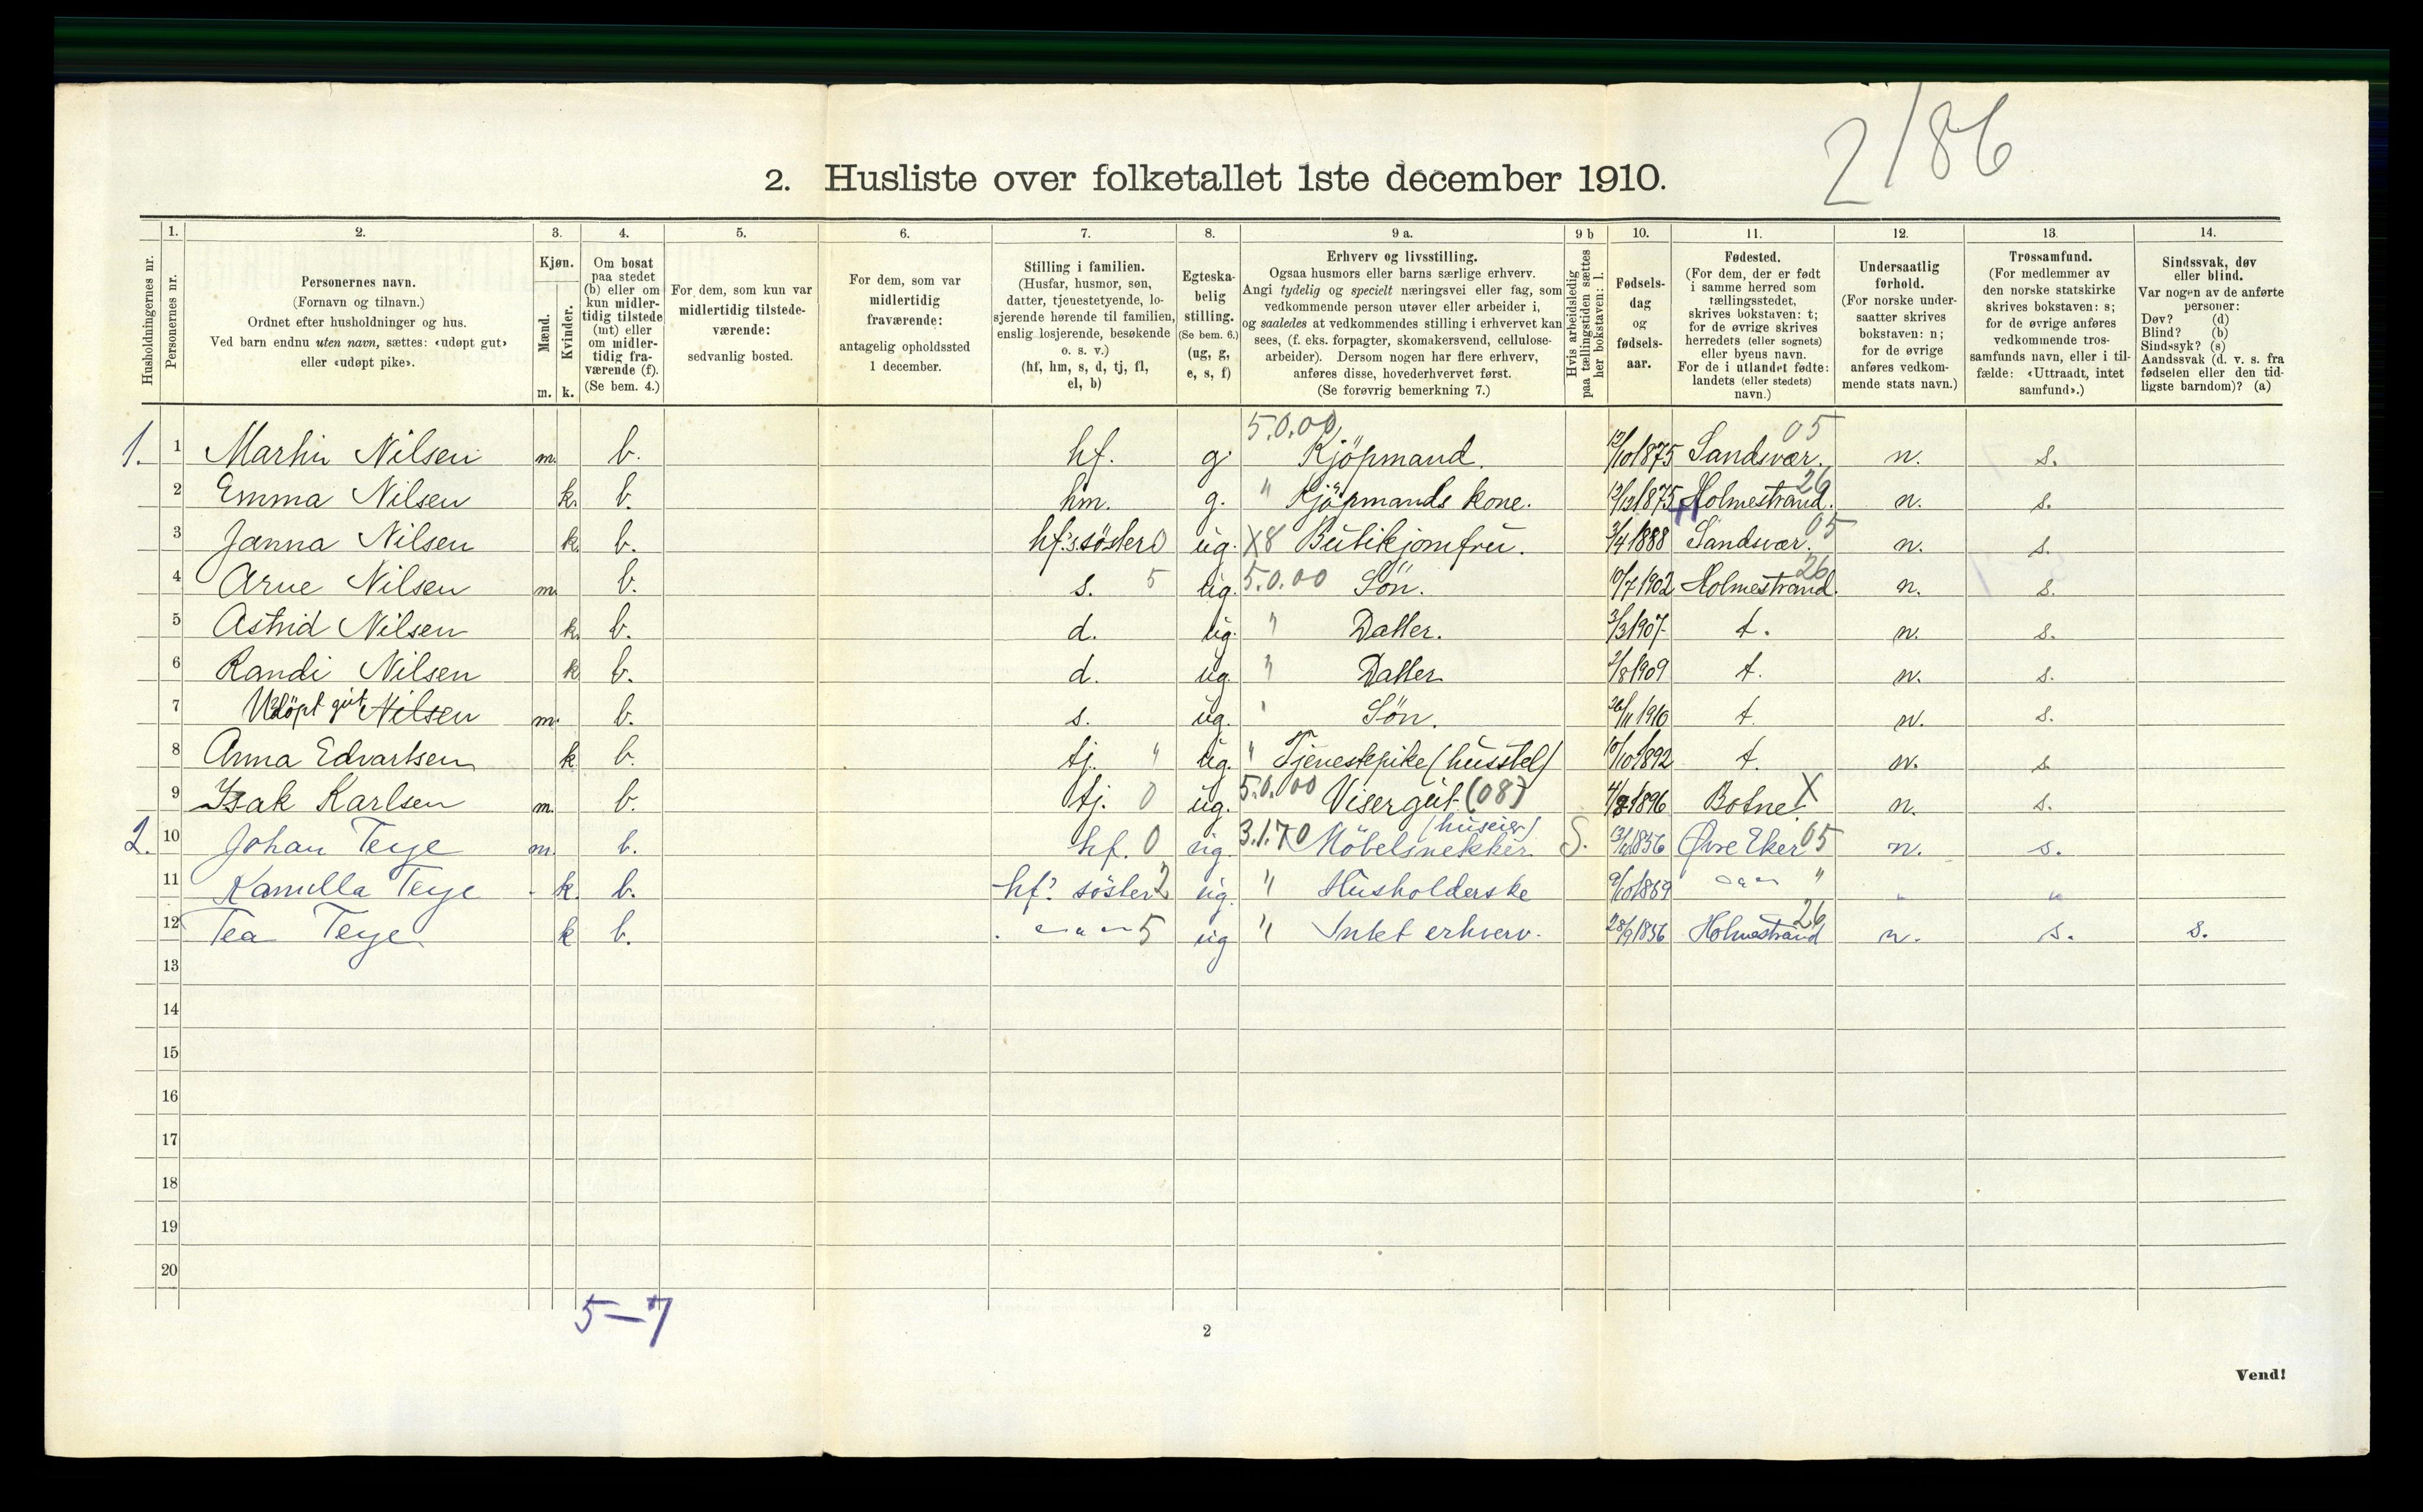 2/86
2. Husliste over folketallet 1ste december 1910.
Husholdningernes nr.
1. Personernes nr.
2. Personernes navn.
(Fornavn og tilnavn.)
Ordnet efter husholdninger og hus.
Ved barn endnu uten navn, sættes: «udøpt gut»
eller «udøpt pike».
3. Kjøn.
Mænd. m.
Kvinder. k.
4. Om bosat
paa stedet
(b) eller om
kun midler-
tidig tilstede
(mt) eller
om midler-
tidig fra-
værende (f).
(Se bem. 4.)
5. For dem, som kun var
midlertidig tilstede-
værende:
sedvanlig bosted.
6. For dem, som var
midlertidig
fraværende:
antagelig opholdssted
1 december.
7. Stilling i familien.
(Husfar, husmor, søn,
datter, tjenestetyende, lo-
sjerende hørende til familien,
enslig losjerende, besøkende
o. s. v.)
(hf, hm, s, d, tj, fl,
el, b)
8. Egteska-
belig
stilling.
(Se bem. 6.)
(ug, g,
e, s, f)
9 a. Erhverv og livsstilling.
Ogsaa husmors eller barns særlige erhverv.
Angi tydelig og specielt næringsvei eller fag, som
vedkommende person utøver eller arbeider i,
og saaledes at vedkommendes stilling i erhvervet kan
sees, (f. eks. forpagter, skomakersvend, cellulose-
arbeider). Dersom nogen har flere erhverv,
anføres disse, hovederhvervet først.
(Se forøvrig bemerkning 7.)
9 b Hvis arbeidsledig
paa tællingstiden sættes
her bokstaven: l.
10. Fødsels-
dag
og
fødsels-
aar.
11. Fødested.
(For dem, der er født
i samme herred som
tællingsstedet,
skrives bokstaven: t;
for de øvrige skrives
herredets (eller sognets)
eller byens navn.
For de i utlandet fødte:
landets (eller stedets)
navn.)
12. Undersaatlig
forhold.
(For norske under-
saatter skrives
bokstaven: n;
for de øvrige
anføres vedkom-
mende stats navn.)
13. Trossamfund.
(For medlemmer av
den norske statskirke
skrives bokstaven: s;
for de øvrige anføres
vedkommende tros-
samfunds navn, eller i til-
fælde: «Uttraadt, intet
samfund».)
14. Sindssvak, døv
eller blind.
Var nogen av de anførte
personer:
Døv? (d)
Blind? (b)
Sindssyk? (s)
Aandssvak (d. v. s. fra
fødselen eller den tid-
ligste barndom)? (a)
5.0.00 05
1. 1 Martin Nilsen m. b. hf. g. Kjöpmand. 12/10 1875 Sandsvær. n. s.
2 Emma Nilsen k. b. hm. g. " Kjöpmands kone. 12/12 1875 Holmestrand. 26 n. s.
3 Janna Nilsen k. b. hf.'s söster 0 ug. X8 Butikjomfru. 3/4 1888 Sandsvær. 05 n. s.
4 Arne Nilsen m. b. s. 5 ug. 5.0.00 Sön. 10/7 1902 Holmestrand. 26 n. s.
5 Astrid Nilsen k. b. d. ug. " Datter. 3/3 1907 t. n. s.
6 Randi Nilsen k b. d. ug. " Datter 2/8 1909 t. n. s.
7 Udöpt gut Nilsen m. b. s. ug. " Sön. 26/11 1910 t. n. s.
8 Anna Edvartsen k b. tj. " ug. " Tjenestepike (husstel) 10/10 1892 t. n. s
9 Isak Karlsen m. b. tj. 0 ug. 5.0.00 Visergut (08) 4/8 1896 Botne. X n. s.
2. 10 Johan Teye m. b. hf. 0 ug. 3.1.70 Möbelsnekker (huseier) S. 1856 Øvre Eker 05 n. s.
11 Kamilla Teye k. b. hf.' söster 2 ug. " Husholderske 9/10 1869 " " "
12 Tea Teye k b. 5 ug " Intet erhverv. 28/9 1856 Holmestrand 26 n. s. s.
13
14
15
16
17
18
19
20
5-7
2
Vend!